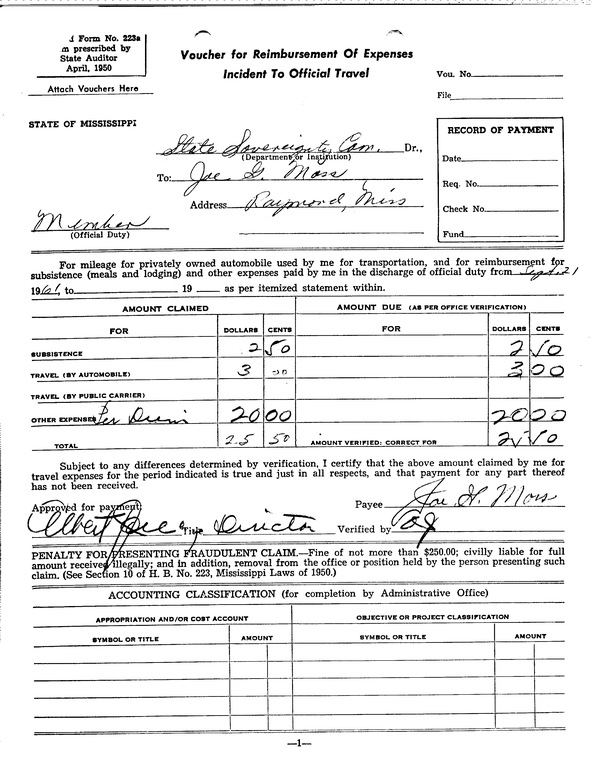 Form No. 223a
prescribed by
State Auditor
April, 1950
Attach Vouchers Here
Voucher for Reimbursement Of Expenses
Incident To Official Travel
Vou. No.
File
STATE OF MISSISSIPPI
State Sovereignty Com. Dr.,
(Department or Institution)
To: Joe G. Moss
Address Raymond, Miss
Member
(Official Duty)
RECORD OF PAYMENT
Date
Req. No.
Check No.
Fund
For mileage for privately owned automobile used by me for transportation, and for reimbursement for
subsistence (meals and lodging) and other expenses paid by me in the discharge of official duty from Sept. 21
1961, to 19 as per itemized statement within.
AMOUNT CLAIMED AMOUNT DUE (AS PER OFFICE VERIFICATION)
FOR DOLLARS CENTS FOR DOLLARS CENTS
SUBSISTENCE 2 50 2 50
TRAVEL (BY AUTOMOBILE) 3 00 3 00
TRAVEL (BY PUBLIC CARRIER)
OTHER EXPENSES Per Diem 20 00 20 00
TOTAL 25 50 AMOUNT VERIFIED: CORRECT FOR
Subject to any differences determined by verification, I certify that the above amount claimed by me for
travel expenses for the period indicated is true and just in all respects, and that payment for any part thereof
has not been received.
Approved for payment: Payee Joe G. Moss
Albert Title Director Verified by
PENALTY FOR PRESENTING FRAUDULENT CLAIM.—Fine of not more than $250.00; civilly liable for full
amount received illegally; and in addition, removal from the office or position held by the person presenting such
claim. (See Section 10 of H. B. No. 223, Mississippi Laws of 1950.)
ACCOUNTING CLASSIFICATION (for completion by Administrative Office)
APPROPRIATION AND/OR COST ACCOUNT OBJECTIVE OR PROJECT CLASSIFICATION
SYMBOL OR TITLE AMOUNT SYMBOL OR TITLE AMOUNT
—1—